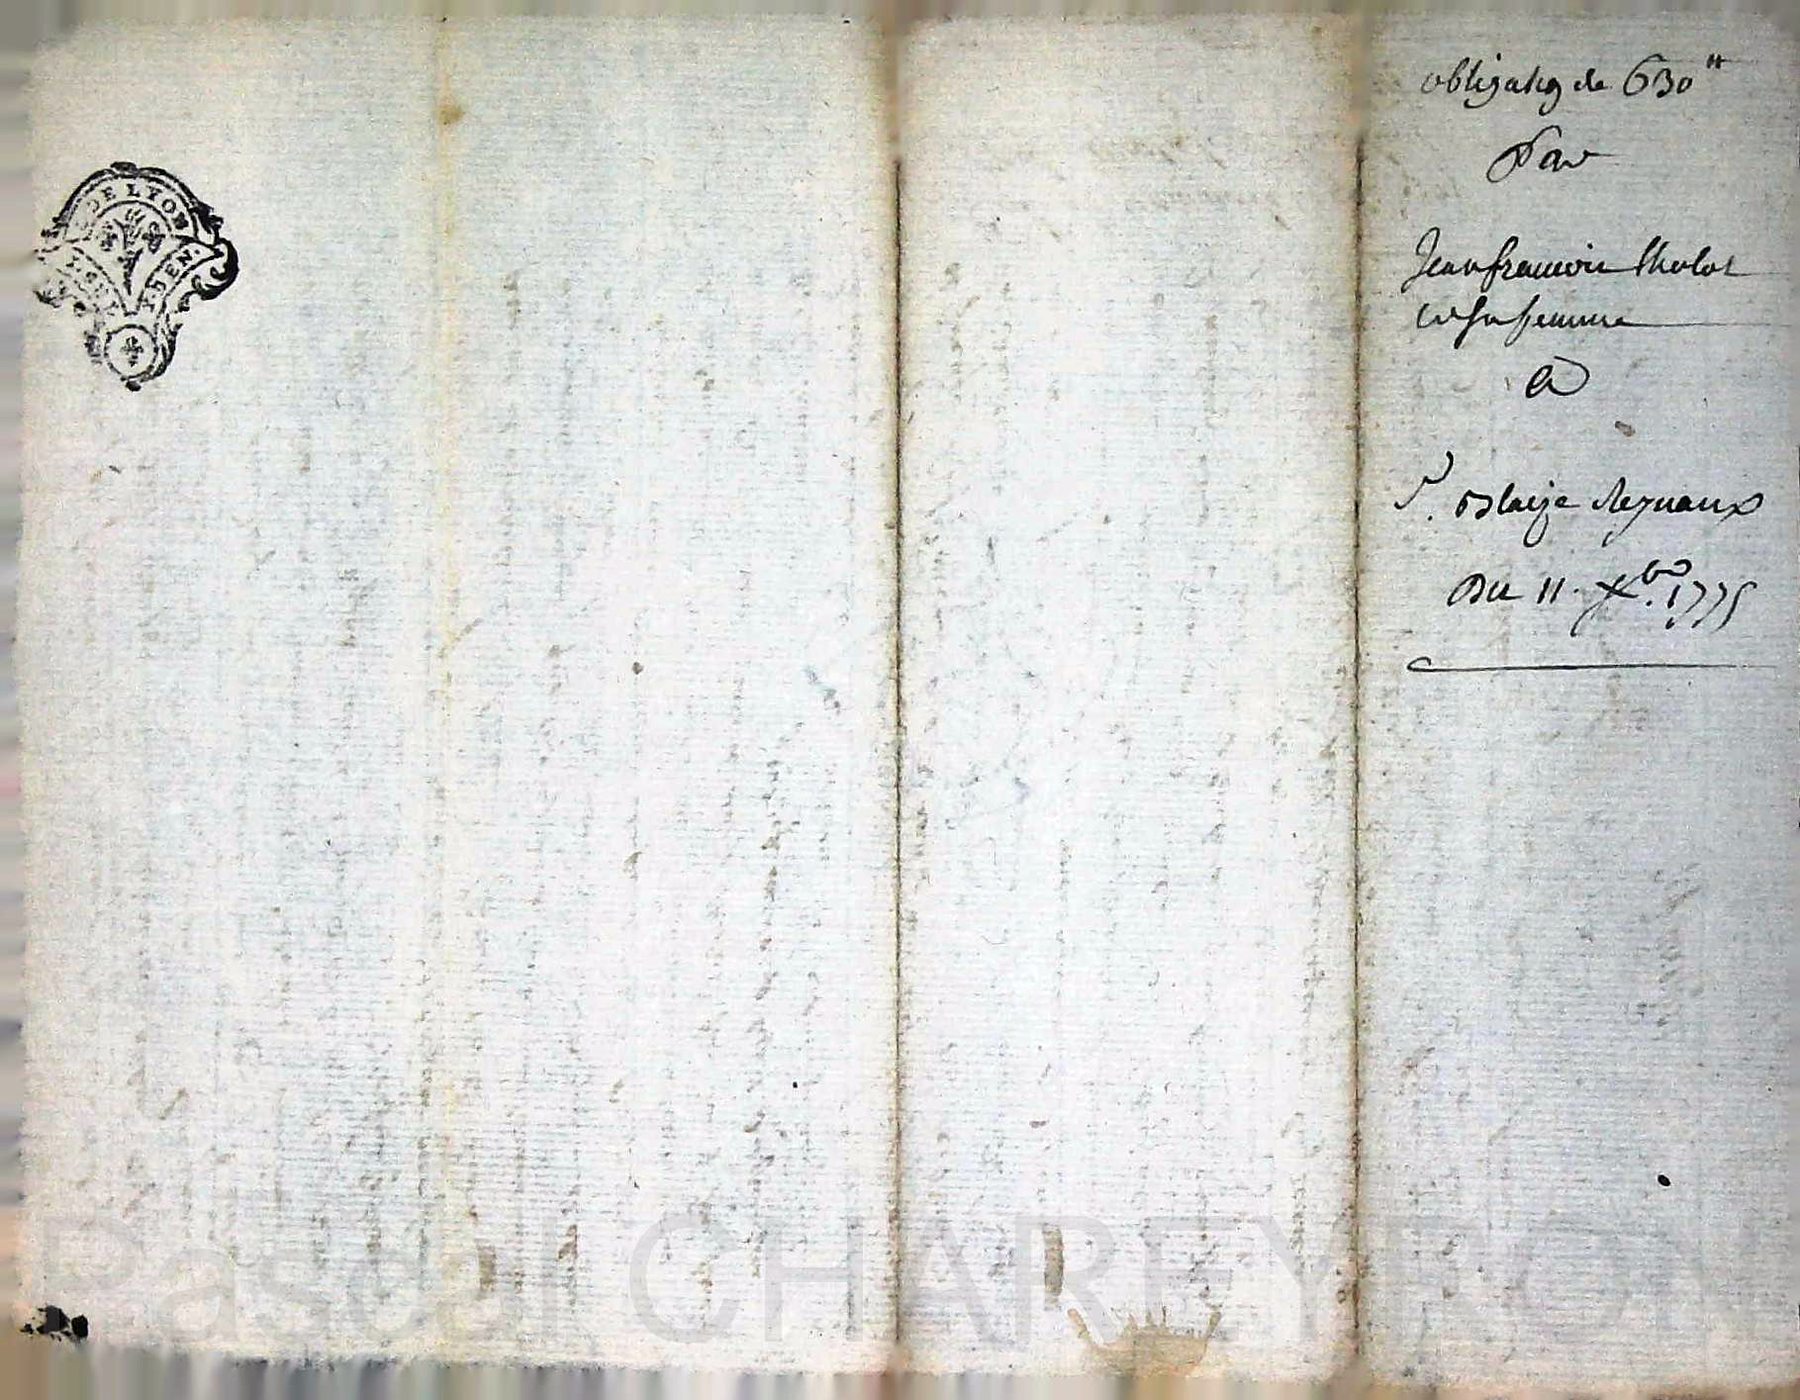 DE LYON
DEN.
obligaōn de 630tt
Par
Jean francois tholot
et sa femme
a
S. Blaize Reynaux
Du 11. Xbre. 1775
Pascal CHAREYRON